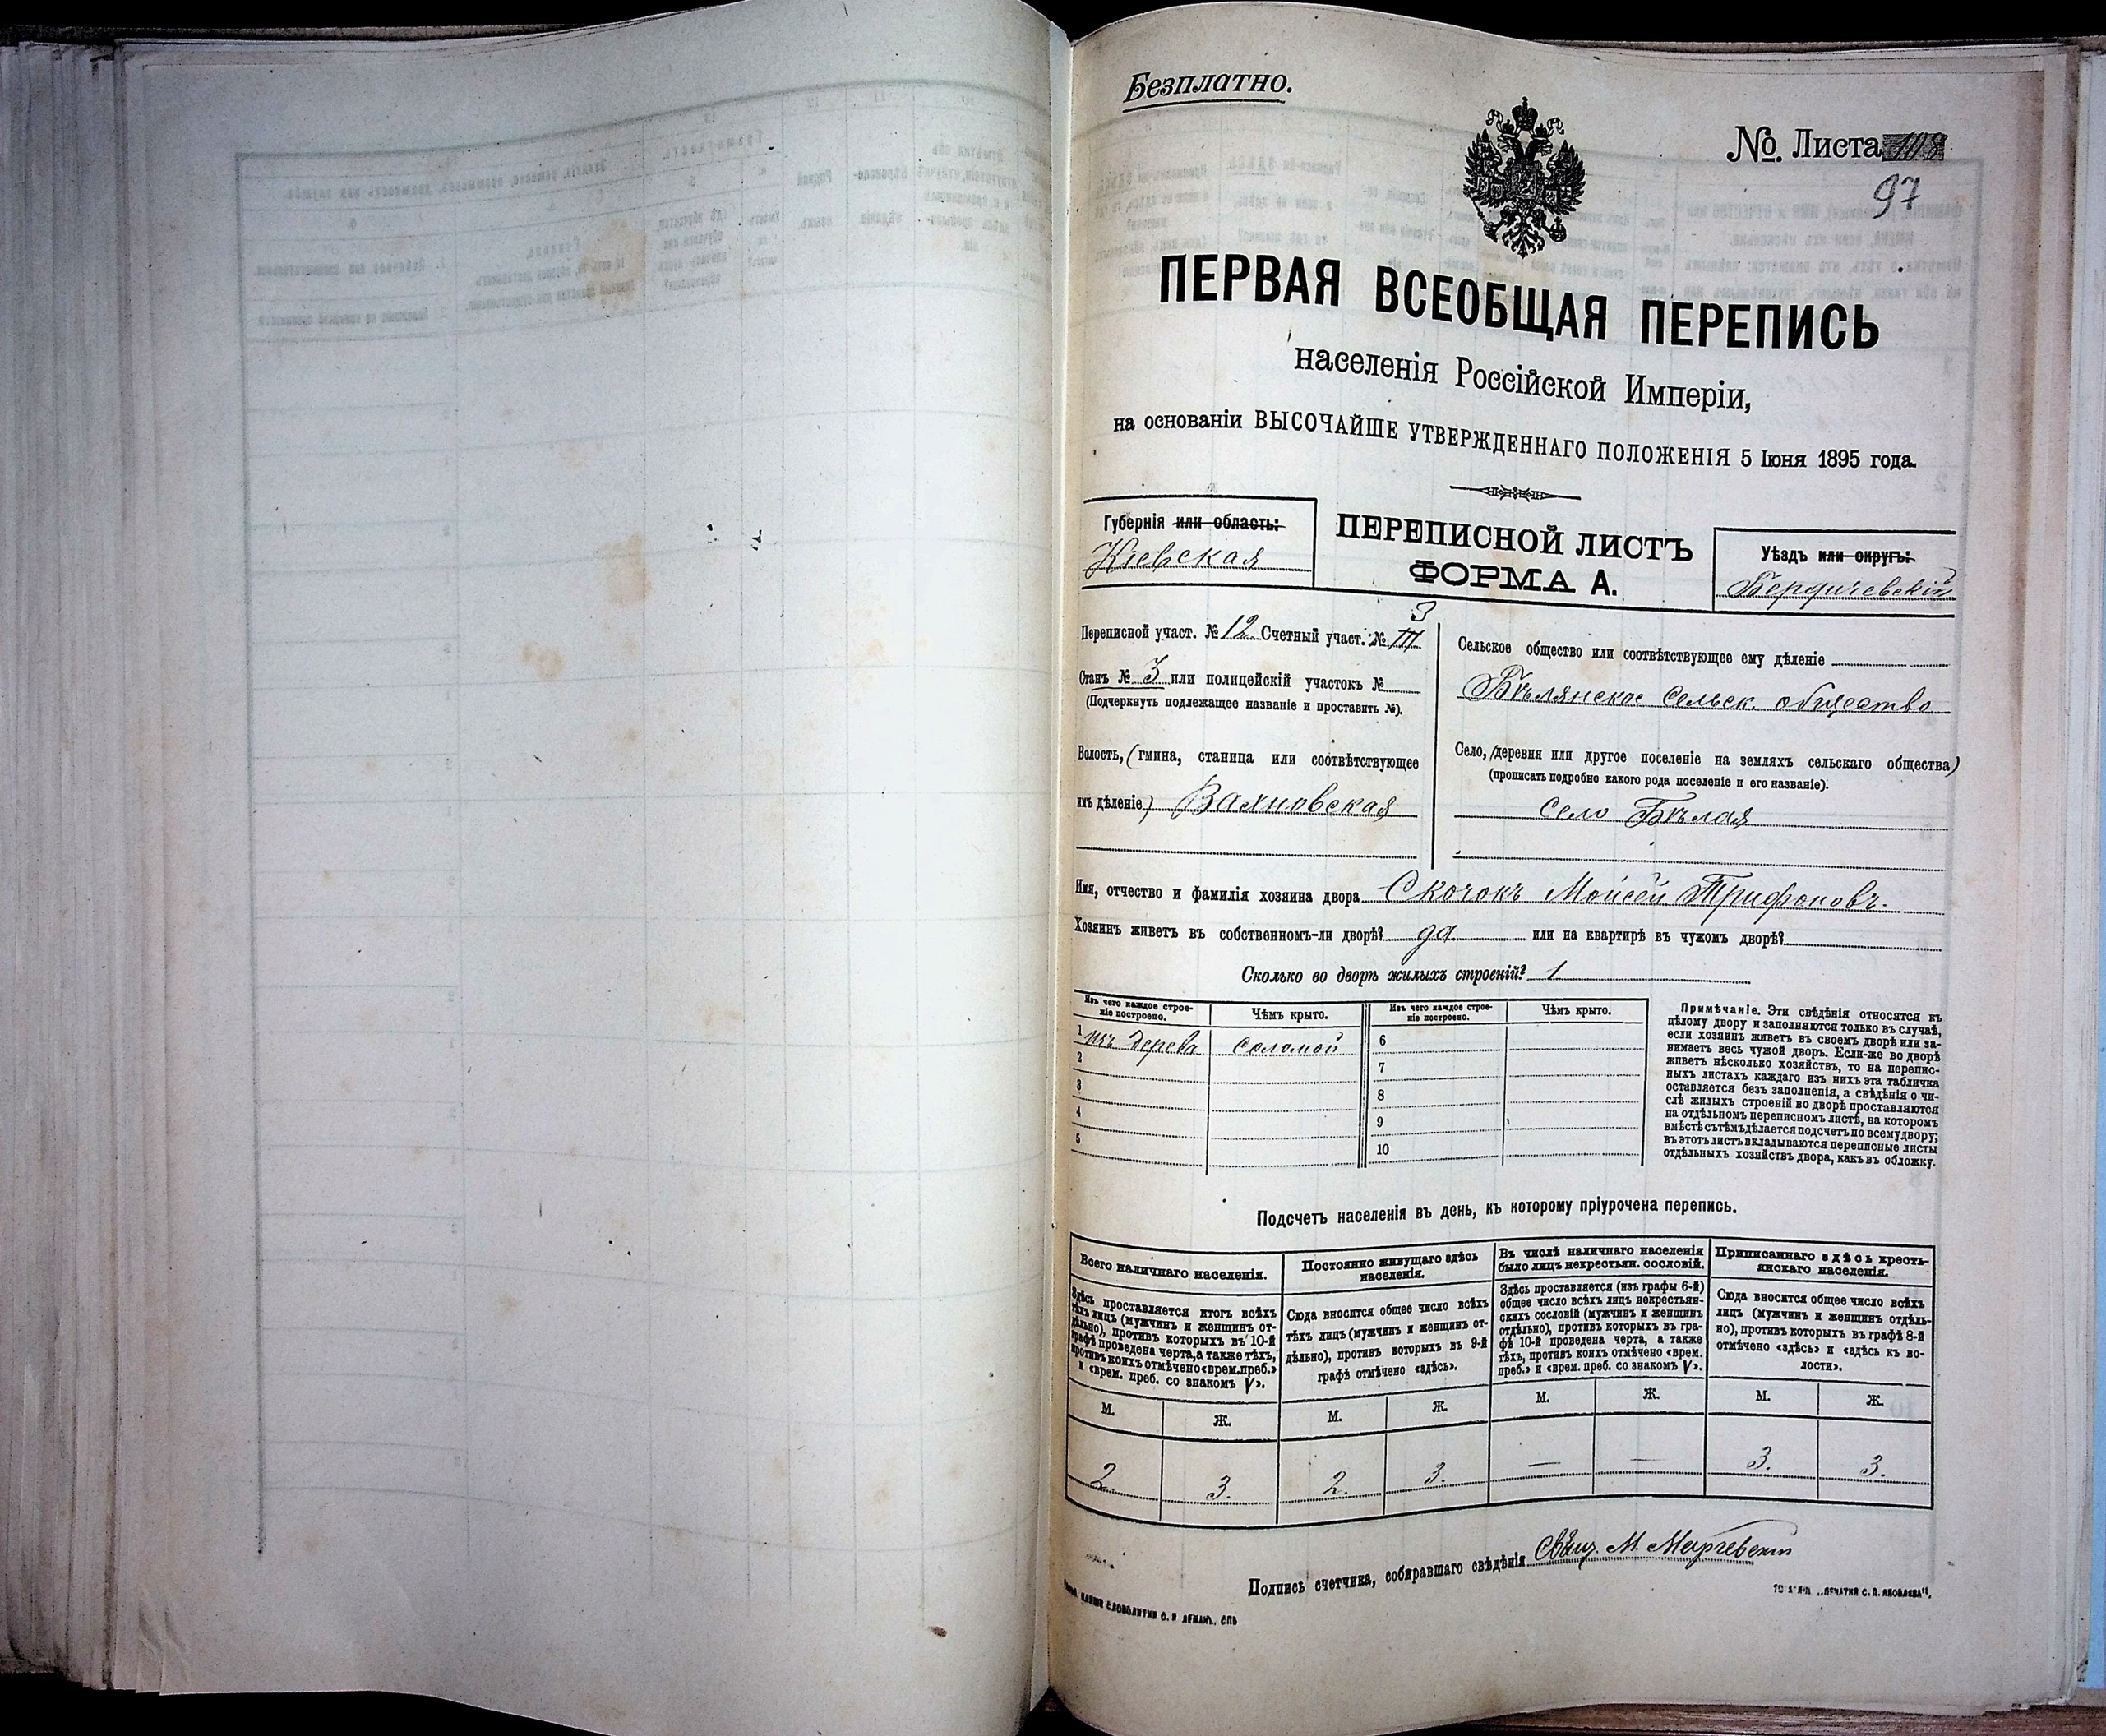 Безплатно.
№ Листа 108
97
ПЕРВАЯ ВСЕОБЩАЯ ПЕРЕПИСЬ
населенія Россійской Имперіи,
на основаніи ВЫСОЧАЙШЕ УТВЕРЖДЕННАГО ПОЛОЖЕНІЯ 5 Іюня 1895 года.
Губернія или область:
Кіевская
ПЕРЕПИСНОЙ ЛИСТЪ
ФОРМА А.
Уѣздъ или округъ:
Бердичевскій
3
Переписной участ. № 12 Счетный участ. № III
Станъ № 3 или полицейскій участокъ №
(Подчеркнуть подлежащее названіе и проставить №).
Волость, (гмина, станица или соотвѣтствующее
имъ дѣленіе) Вахновская
Сельское общество или соотвѣтствующее ему дѣленіе
Бѣлянское сельск. общество
Село, (деревня или другое поселеніе на земляхъ сельскаго общества)
(прописать подробно какого рода поселеніе и его названіе).
село Бѣлая
Имя, отчество и фамилія хозяина двора Скочокъ Моисей Трифоновъ.
Хозяинъ живетъ въ собственномъ-ли дворѣ? да или на квартирѣ въ чужомъ дворѣ?
Сколько во дворѣ жилыхъ строеній? 1
Изъ чего каждое строе-
ніе построено.
Чѣмъ крыто.
Изъ чего каждое строе-
ніе построено.
Чѣмъ крыто.
1 изъ дерева соломой 6
2 7
3 8
4 9
5 10
Примѣчаніе. Эти свѣдѣнія относятся къ
цѣлому двору и заполняются только въ случаѣ,
если хозяинъ живетъ въ своемъ дворѣ или за-
нимаетъ весь чужой дворъ. Если-же во дворѣ
живетъ нѣсколько хозяйствъ, то на перепис-
ныхъ листахъ каждаго изъ нихъ эта табличка
оставляется безъ заполненія, а свѣдѣнія о чи-
слѣ жилыхъ строеній во дворѣ проставляются
на отдѣльномъ переписномъ листѣ, на которомъ
вмѣстѣ съ тѣмъ дѣлается подсчетъ по всему двору;
въ этотъ листъ вкладываются переписные листы
отдѣльныхъ хозяйствъ двора, какъ въ обложку.
Подсчетъ населенія въ день, къ которому пріурочена перепись.
Всего наличнаго населенія.
Здѣсь проставляется итогъ всѣхъ
тѣхъ лицъ (мужчинъ и женщинъ от-
дѣльно), противъ которыхъ въ 10-й
графѣ проведена черта, а также тѣхъ,
противъ коихъ отмѣчено «врем. преб.»
и «врем. преб. со знакомъ V».
Постоянно живущаго здѣсь
населенія.
Сюда вносится общее число всѣхъ
тѣхъ лицъ (мужчинъ и женщинъ от-
дѣльно), противъ которыхъ въ 9-й
графѣ отмѣчено «здѣсь».
Въ числѣ наличнаго населенія
было лицъ некрестьян. сословій.
Здѣсь проставляется (изъ графы 6-й)
общее число всѣхъ лицъ некрестьян-
скихъ сословій (мужчинъ и женщинъ
отдѣльно), противъ которыхъ въ гра-
фѣ 10-й проведена черта, а также
тѣхъ, противъ коихъ отмѣчено «врем.
преб.» и «врем. преб. со знакомъ V».
Приписаннаго здѣсь кресть-
янскаго населенія.
Сюда вносится общее число всѣхъ
лицъ (мужчинъ и женщинъ отдѣль-
но), противъ которыхъ въ графѣ 8-й
отмѣчено «здѣсь» и «здѣсь къ во-
лости».
М. Ж. М. Ж. М. Ж. М. Ж.
2. 3. 2. 3. — — 3. 3.
Подпись счетчика, собиравшаго свѣдѣнія Свящ. М.
СЛОВОЛИТНИ О. И ЛЕМАНЪ, СПБ
„ПЕЧАТНЯ С. П. ЯКОВЛЕВА".